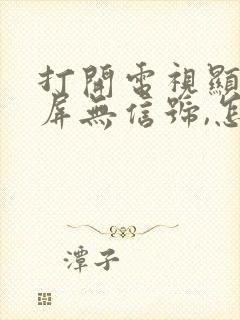 打開電視顯
屏無信號,怎
潭子